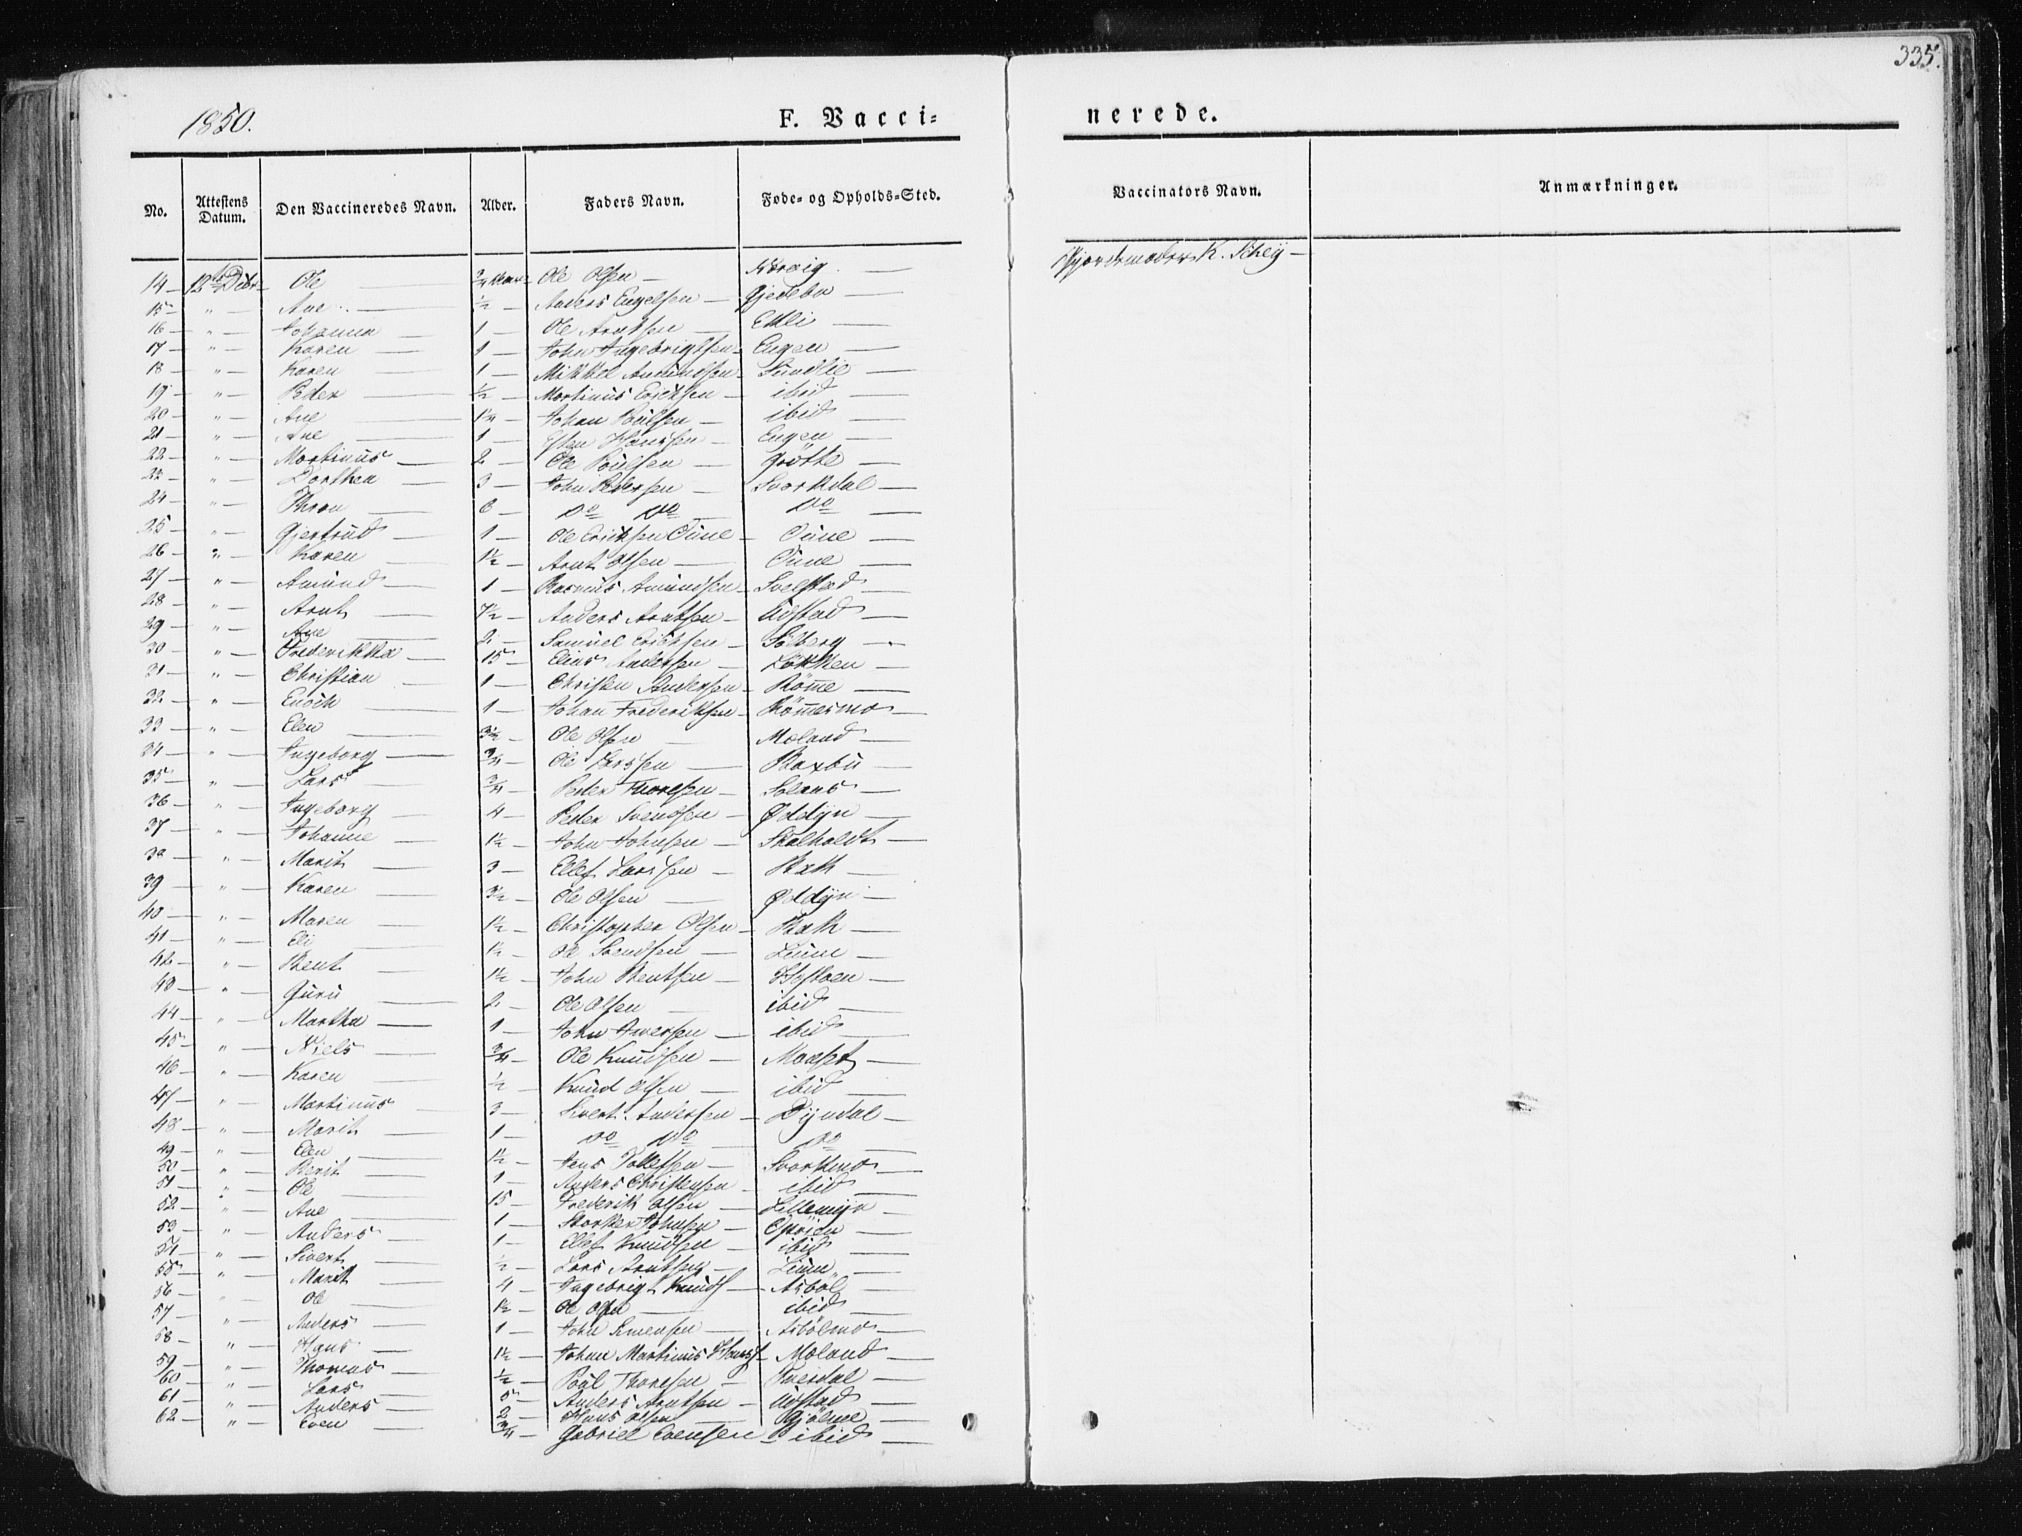 335.
1850.
F. Vacci-nerede.
No. Attestens Datum. Den Vaccineredes Navn. Alder. Faders Navn. Føde- og Opholds-Sted. Vaccinators Navn. Anmærkninger.
14 12 Decbr Ole 3/4 Ole Olsen K. Schey
15 " Ane 1/2 Anders Engelsen Gjedebu
16 " Johanna 1 Ole Arntsen Elli
17 " Karen 1 John Ingebrigtsen Engen
18 " Karen 1 Mikkel Amundsen Sundlie
19 " Peder 1/2 Martinus Ericksen ibid
20 " Ane Johan Poulsen ibid
21 " Ane 1 Esten Hanssen Engen
22 " Martinus 2 Ole Poulsen Grøtte
23 " Dorthea 3 John Pedersen Svorkdal
24 " Thron 6 do do do
25 " Gjertrud 1 Ole Ericksen Tune Tune
26 " Karen 1½ Arnt Olsen Tune
27 " Amund 1 Rasmus Amundsen Solstad
28 " Arnt 7½ Anders Arntsen Ustad
29 " Ane 2 Samuel Ericksen Solberg
30 " Frederikka 15 Elias Andersen Løkken
31 " Christian 1 Christen Andersen Rømme
32 " Enoch 1 Johan Frederiksen Rømmesmo
33 " Elen 3½ Ole Olsen Moland
34 " Ingeborg 3/4 Ole Larssen Raxbu
35 " Lars 3/4 Peder Thoresen Solaas
36 " Ingeborg 4 Peder Svendsen Øddyn
37 " Johanne 1½ John Johnsen Skalholdt
38 " Marit 3 Ellef Larssen Bak
39 " Karen 3½ Ole Olsen Øddyn
40 " Maren 1½ Christopher Olsen Bak
41 " Eli 1½ Ole Svendsen Leum
42 " Bent 1½ John Bentsen
43 " Guru 2 Ole Olsen ibid
44 " Martha 1 John Iversen ibid
45 " Niels 3/4 Ole Knudsen
46 " Karen 1/2 Knud Olsen ibid
47 " Martinus 3 Sivert Andersen Dyrdal
48 " Marit 1 do do do
49 " Elen 1½ Jens Tollefsen Svorkmo
50 " Berit 1 Anders Christensen ibid
51 " Ole 15 Frederik Olsen Lillemyr
52 " Ane 1 Storker Johnsen
53 " Anders 1 Ellef Knudsen ibid
54 " Sivert 1/2 Lars Arntsen Leum
55 " Marit 4 Ingebrigt Knuds Asbøl
56 " Ole 1½ Ole Olsen ibid
57 " Anders 1 John Simensen Asbølmo
58 " Hans 1½ Johan Martinus Hanss Moland
59 " Thomas 1/2 Poul Thoresen
60 " Lars 5 Anders Arntsen Ustad
61 " Anders 2 Hans Olsen Gjølme
62 " Even 3/4 Gabriel Evensen ibid